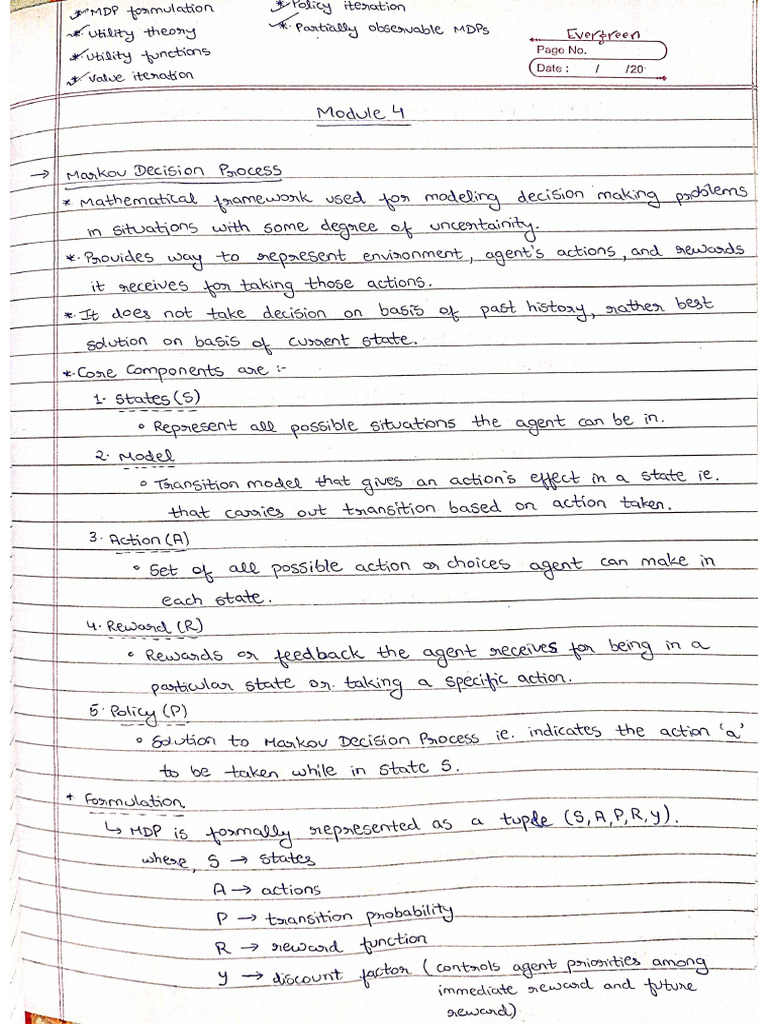 * MDP formulation
* Utility theory
* Utility functions
* Value iteration
* Policy iteration
* Partially observable MDPs
Evergreen
Page No.
Date : / /20
Module 4
→ Markov Decision Process
* Mathematical framework used for modeling decision making problems
in situations with some degree of uncertainity.
* Provides way to represent environment, agent's actions, and rewards
it receives for taking those actions.
* It does not take decision on basis of past history, rather best
solution on basis of current state.
* Core Components are :-
1. States (S)
° Represent all possible situations the agent can be in.
2. Model
° Transition model that gives an action's effect in a state ie.
that carries out transition based on action taken.
3. Action (A)
° Set of all possible action or choices agent can make in
each state.
4. Reward (R)
° Rewards or feedback the agent receives for being in a
particular state or taking a specific action.
5. Policy (P)
° Solution to Markov Decision Process ie. indicates the action 'a'
to be taken while in state S.
+ Formulation
↳ MDP is formally represented as a tuple (S, A, P, R, y).
where, S → states
A → actions
P → transition probability
R → reward function
y → discount factor (controls agent priorities among
immediate reward and future
reward).